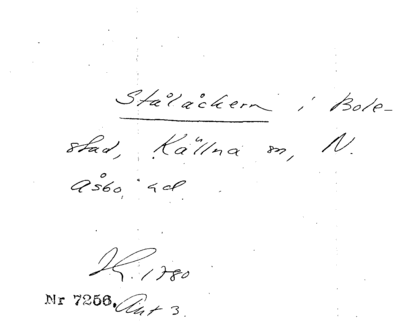 Ståläckern i Bole-
stad, Källna sn, N.
Åsbo, hd
Kr. 1780
Nr 7256. Ant 3.